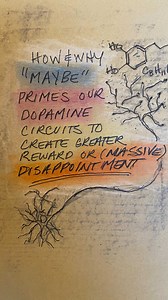 HOW & WHY
"MAYBE"
PRIMES OUR
DOPAMINE
CIRCUITS TO
CREATE GREATER
REWARD OR (MASSIVE)
DISAPPOINTMENT
HO
HO